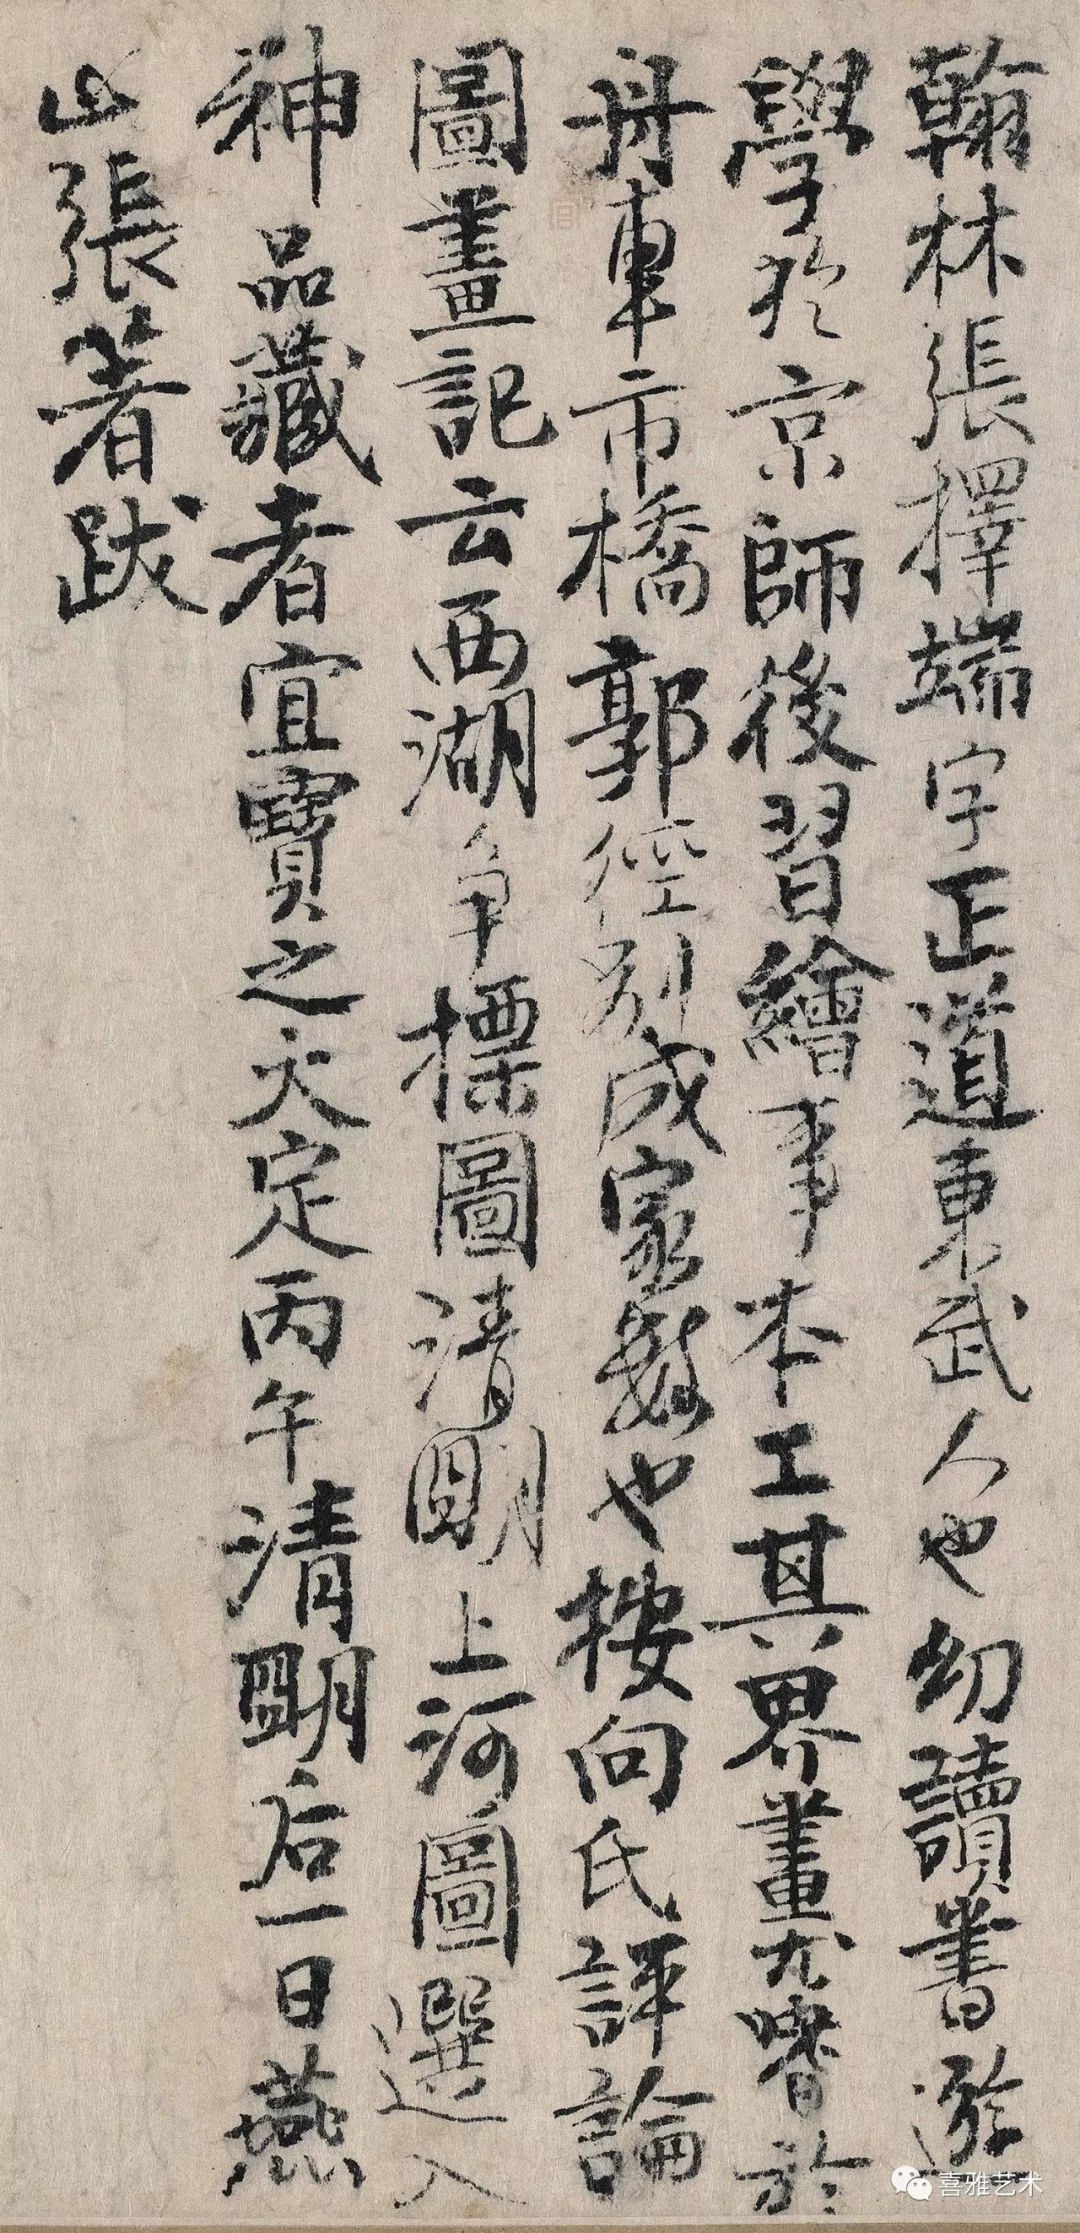 翰林張擇端字正道東武人也幼讀書遊
學於京師後習繪事本工其界畫尤嗜於
舟車市橋郭徑別成家數也按向氏評論
圖畫記云西湖争摽圖清明上河圖選入
神品藏者宜寶之大定丙午清明后一日燕
山張著跋
喜雅艺术